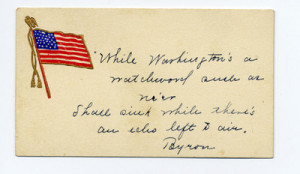 "While Washington's a
watchword such as
ne'er
Shall sink while there's
an echo left to air.
Byron